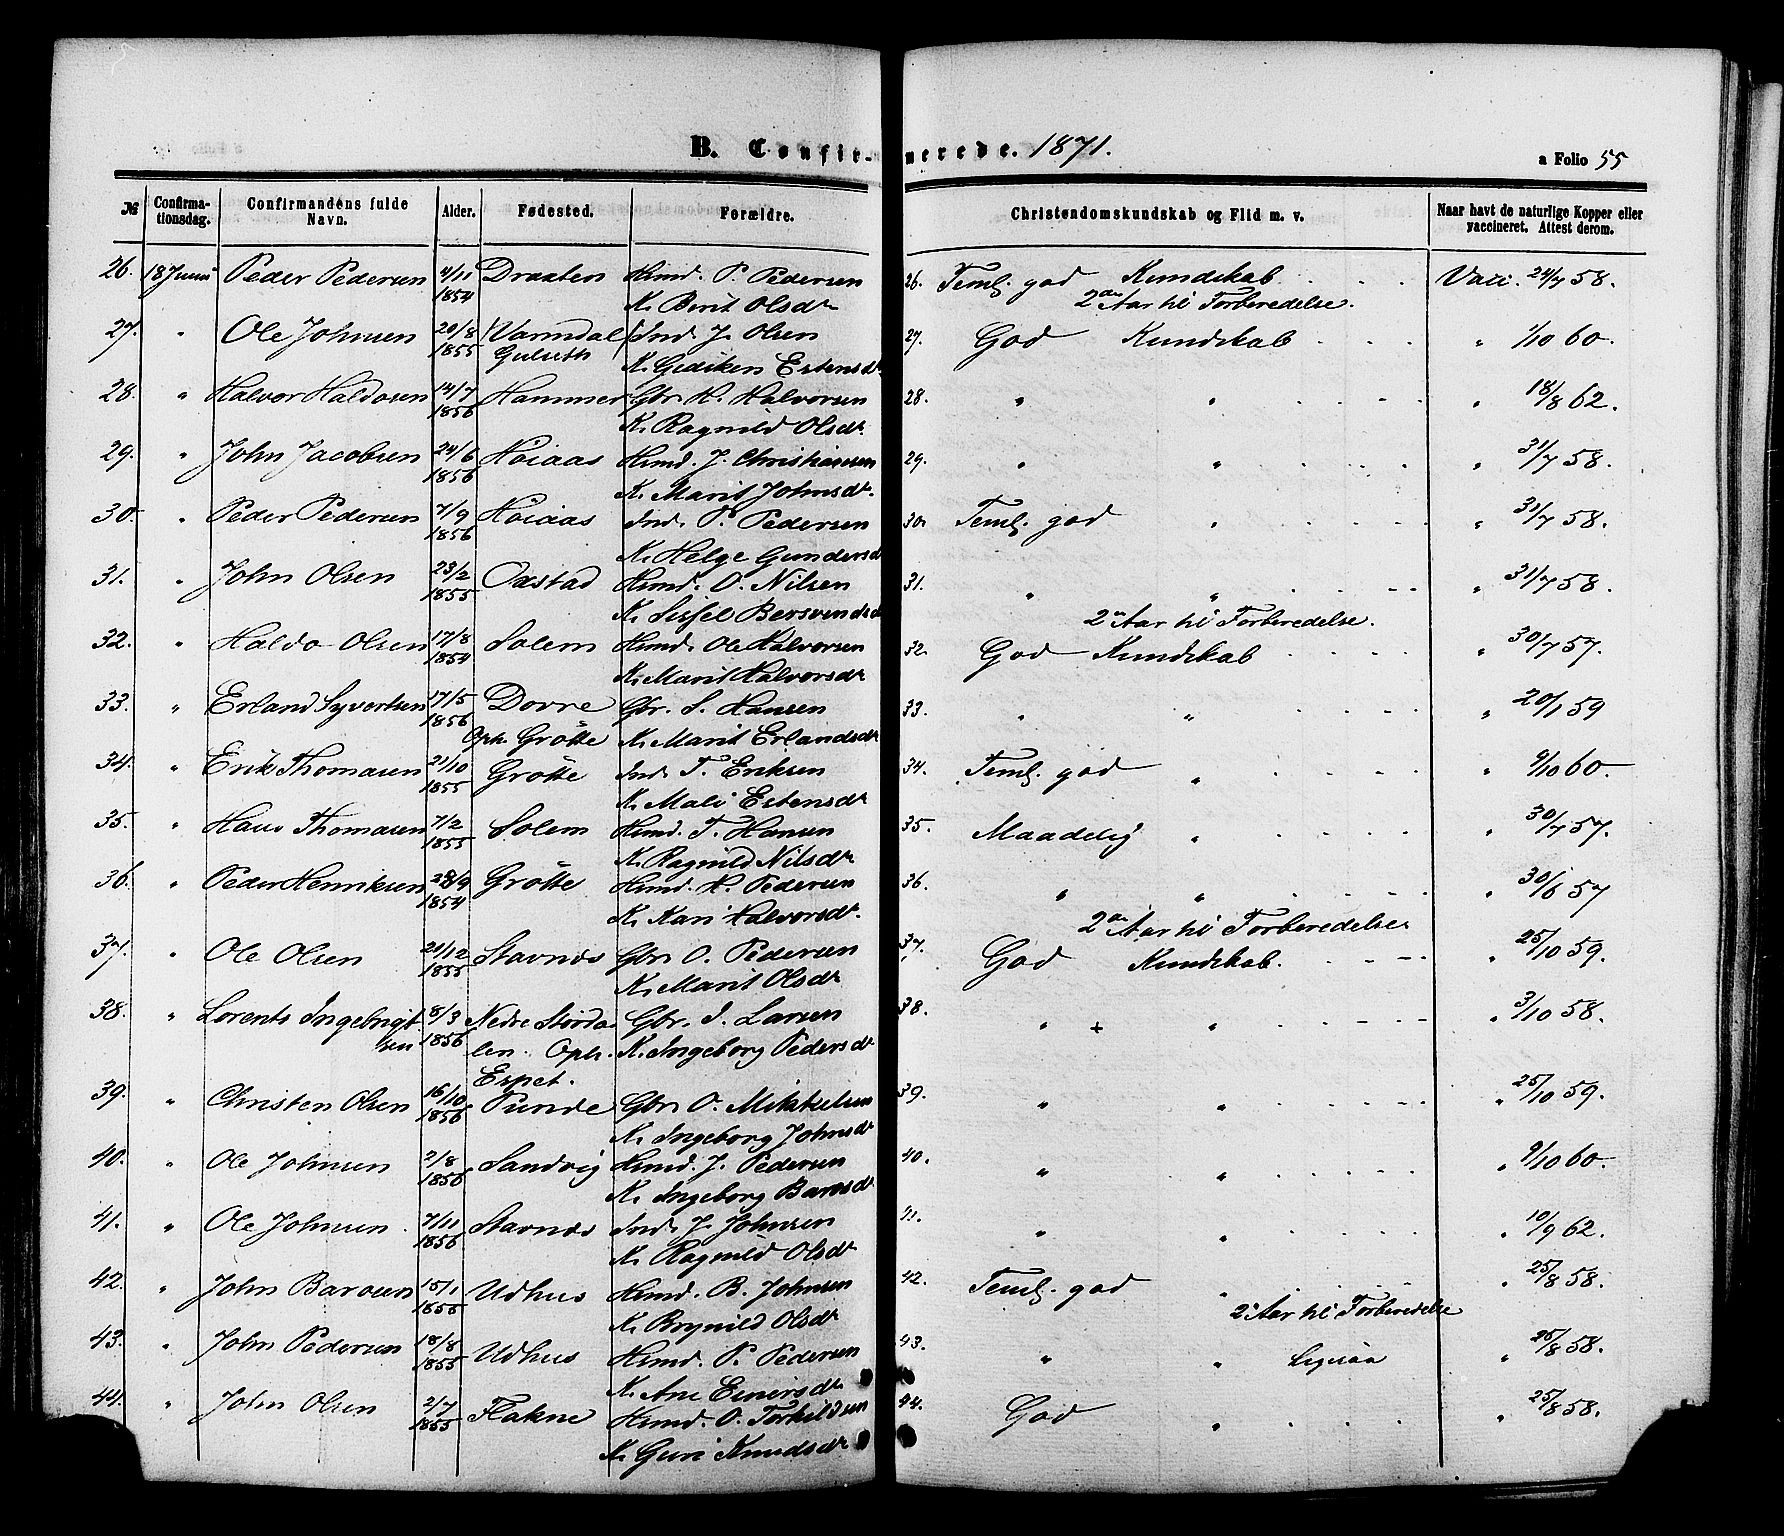 B. Confirmerede. 1871.
a Folio 55
№ Confirmationsdag. Confirmandens fulde Navn. Alder. Fødested. Forældre. Christendomskundskab og Flid m. v. Naar havt de naturlige Kopper eller vaccineret. Attest derom.
26. 18 Juni Peder Pedersen 4/11 1854 Draxten Hmd. P. Pedersen 26. Teml. god Kundskab Vacc. 24/7 58.
K. Berit Olsdr 2den Aar til Forberedelse.
27. " Ole Johnsen 20/8 1855 Varmdal Ind. J. Olsen 27. God Kundskab " 1/10 60.
Gulseth K. Gediken Estensdr
28. " Halvor Haldosen 14/7 1856 Hammer Gbr. H. Halvorsen 28. " " " 18/8 62.
K. Ragnild Olsdr.
29. " John Jacobsen 24/6 1856 Höiaas Hmd. J. Christiansen 29. " " " 31/7 58.
K. Marit Johnsdr.
30. " Peder Pedersen 7/9 1856 Höiaas Ind. P. Pedersen 30. Teml. god " " 31/7 58.
K. Helge Gundersd
31. " John Olsen 23/2 1855 Oxstad Hmd. O. Nilsen 31. " " " 31/7 58.
K. Sissel Bersvendsd 2den Aar til Forberedelse.
32. " Haldo Olsen 17/8 1854 Solem Hmd. Ole Halvorsen 32. God Kundskab " 30/7 57.
K. Marit Halvorsdr
33. " Erland Syvertsen 17/5 1856 Dovre Gbr. S. Hansen 33. " " " 20/1 59
Oph. Grötte K. Marit Erlandsdr
34. " Erik Thomasen 21/10 1855 Grötte Ind. T. Eriksen 34. Teml. god " " 9/10 60.
K. Mali Estensdr
35. " Hans Thomasen 7/2 1855 Solem Hmd. T. Hansen 35. Maadelig " " 30/7 57.
K. Ragnild Nilsdr
36. " Peder Henriksen 28/9 1854 Grötte Hmd. H. Pedersen 36. " " " 30/6 57
K. Kari Halvorsdr. 2den Aar til Forberedelse
37. " Ole Olsen 21/12 1855 Stavnæs Gbr. O. Pedersen 37. God Kundskab. " 25/10 59.
K. Marit Olsdr
38. " Lorents Ingebrigt 8/3 1856 Nedre Størda Gbr. I. Larsen 38. " + " " 3/10 58.
sen len. Oph. K. Ingeborg Pedersdr
Espet.
39. " Christen Olsen 16/10 1856 Punde Gbr. O. Mikkelsen 39. " " " 25/10 59.
K. Ingeborg Johnsdr
40. " Ole Johnsen 2/8 1856 Sandvig Hmd. J. Pedersen 40. " " " 9/10 60.
K. Ingeborg Barosdr
41. " Ole Johnsen 7/11 1856 Stavnæs Ind. J. Johnsen 41. " " " 10/9 62.
K. Ragnild Olsdr
42. " John Barosen 15/1 1855 Udhus Hmd. B. Johnsen 42. Teml. god " " 25/8 58.
K. Brynild Olsdr 2. Aar til Forberedelse
43. " John Pedersen 18/8 1855 Udhus Hmd. P. Pedersen 43. " " Ligesaa " 25/8 58.
K. Ane Einersdr
44. " John Olsen 2/7 1855 Flakne Hmd. O. Torkildsen 44. God " " 25/8 58.
K. Guri Knudsdr